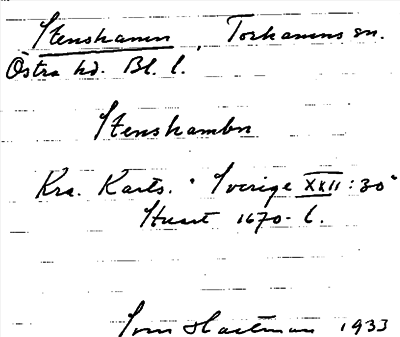 Stenshamn, Torhamns sn.
Östra hd. Bl. l.
Stenshambn
Kra. Karts. "Sverige XXII:30"
Stuart 1670-t.
Tom Hartman 1933